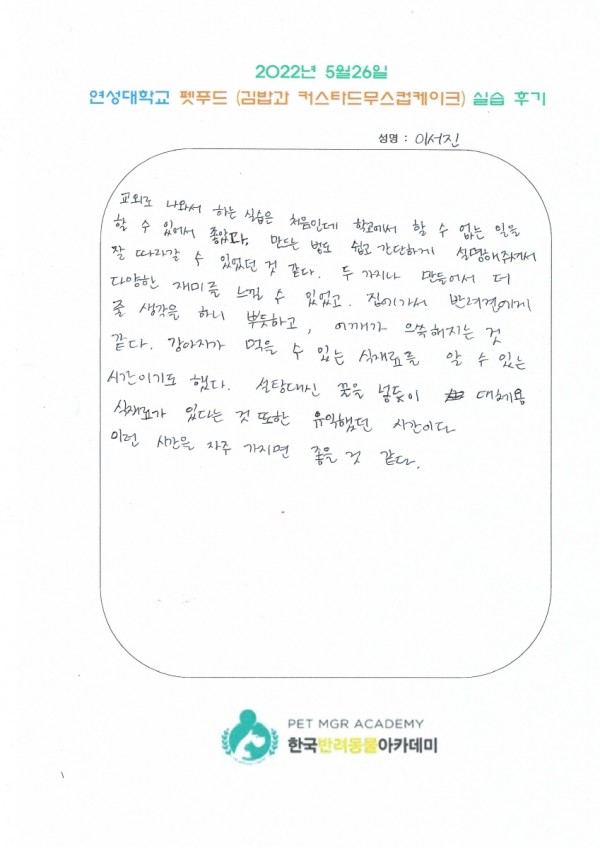 2022년 5월26일
연성대학교 펫푸드 (김밥과 커스타드무스컵케이크) 실습 후기
성명 : 이서진
교외로 나와서 하는 실습은 처음인데 학교에서 할 수 없는 일을
할 수 있어서 좋았다. 만드는 법도 쉽고 간단하게 설명해주셔서
잘 따라갈 수 있었던 것 같다. 두 가지나 만들어서 더
다양한 재미를 느낄 수 있었고. 집에가서 반려견에게
줄 생각을 하니 뿌듯하고, 어깨가 으쓱해지는 것
같다. 강아지가 먹을 수 있는 식재료를 알 수 있는
시간이기도 했다. 설탕대신 꿀을 넣듯이 대체용
식재료가 있다는 것 또한 유익했던 시간이다
이런 시간을 자주 가지면 좋을 것 같다.
PET MGR ACADEMY
한국반려동물아카데미